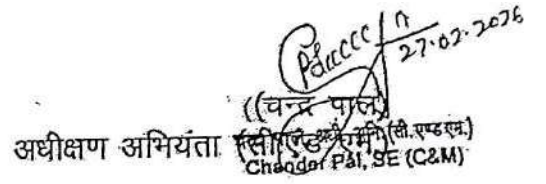 27.02.2026
((चन्द्र पाल)
अधीक्षण अभियंता (सी.एण्ड एम.)
Chander Pal, SE (C&M)